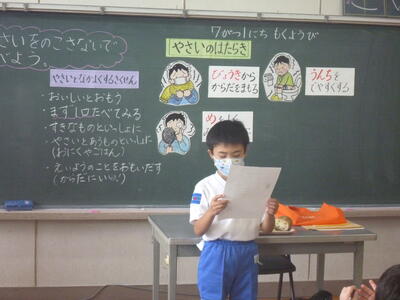 7がつ1にち もくようび
さいをのこさないで
べよう。
やさいとなかよくするさくせん
・おいしいとおもう
・まず1口たべてみる
・すきなものといっしょに
・やさいとあうものといっしょに
(おにくやごはん)
・えいようのことをおもいだす
(からだにいい!)
やさいのはたらき
びょうきから
からだをまもる
うんちを
でやすくする